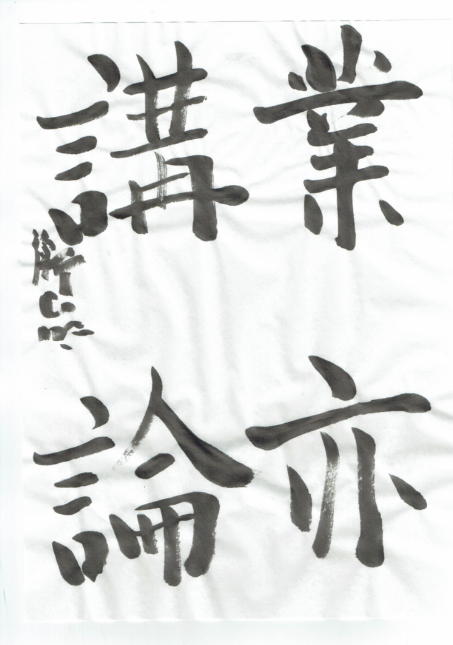 業亦
講論